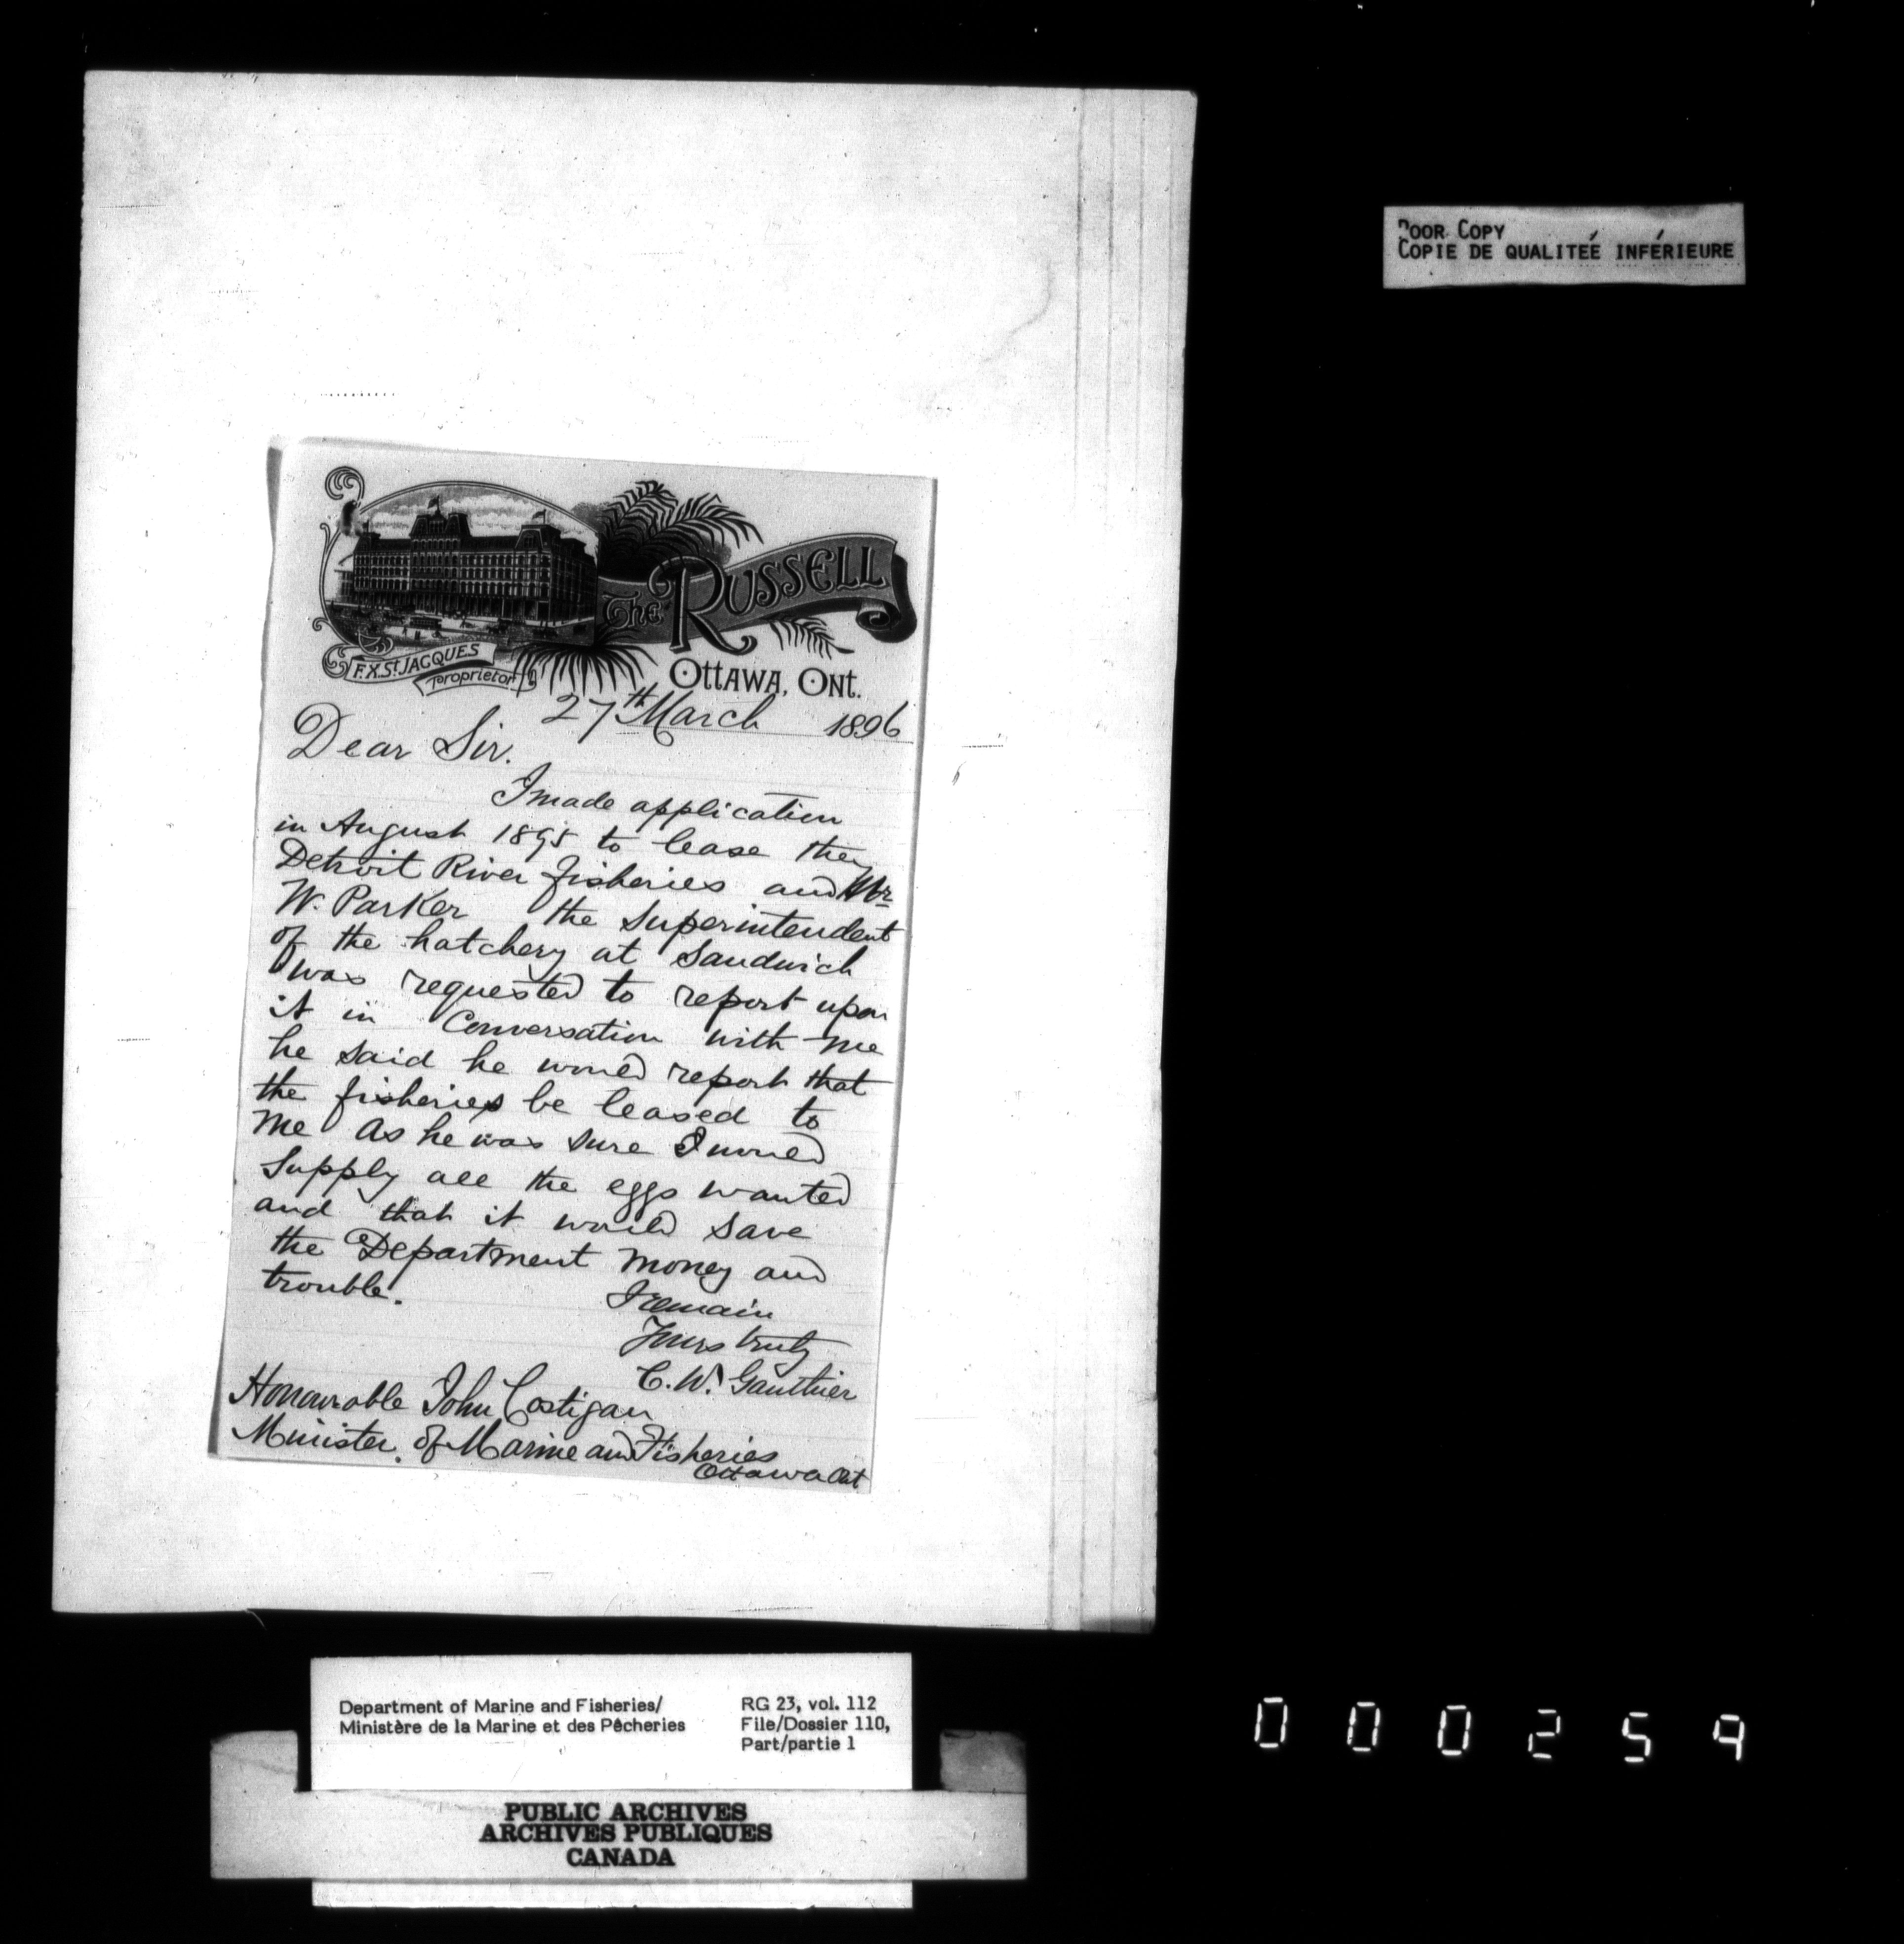 POOR COPY
COPIE DE QUALITEÉ INFÉRIEURE
The RUSSELL
F.X. St. JACQUES
Proprietor
OTTAWA, ONT.
27th March 1896
Dear Sir.
I made application
in August 1895 to lease they
Detroit River fisheries and Mr
W. Parker the Superintendent
of the hatchery at Sandwich
was requested to report upon
it in Conversation with me
he said he would report that
the fisheries be leased to
me As he was sure I would
Supply all the eggs wanted
and that it would save
the Department money and
trouble.
I remain
Yours truly
C. W. Gauthier
Honourable John Costigan
Minister. of Marine and Fisheries
Ottawa Ont
Department of Marine and Fisheries/
Ministère de la Marine et des Pêcheries
RG 23, vol. 112
File/Dossier 110,
Part/partie 1
PUBLIC ARCHIVES
ARCHIVES PUBLIQUES
CANADA
000259